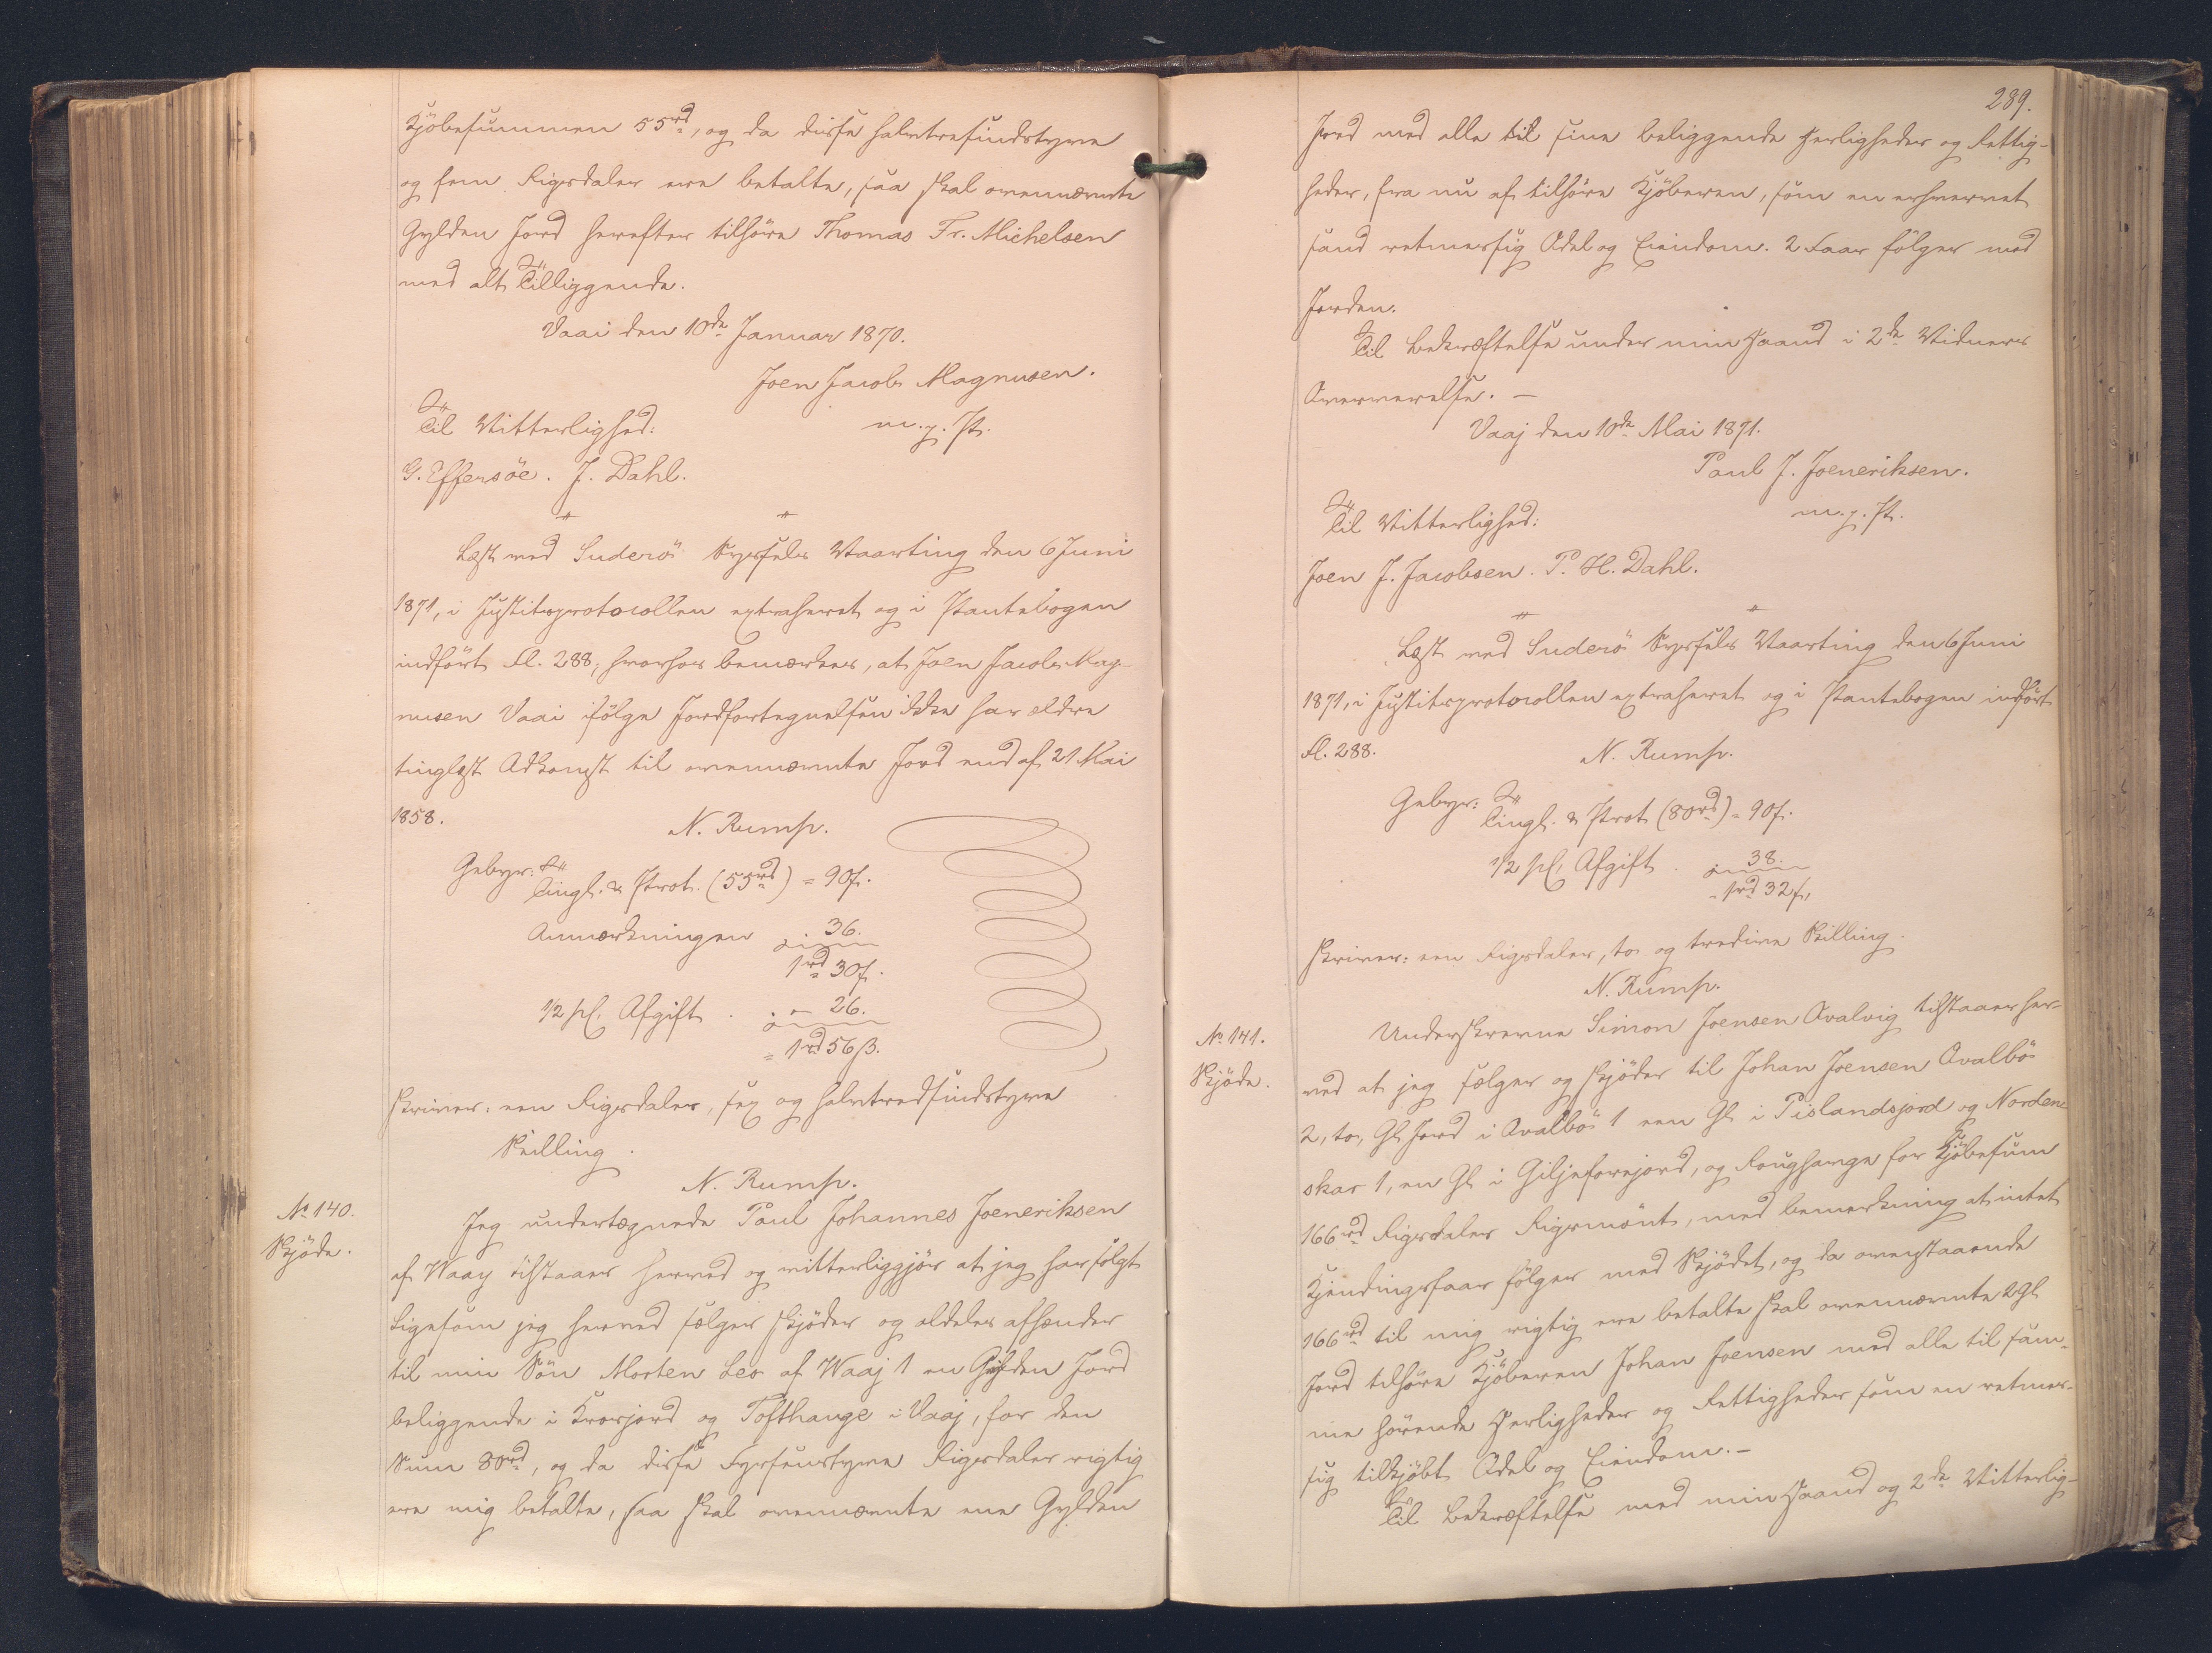 Kjöbesummen 55rd, og da disse halvtresindstyve
og fem Rigsdaler ere betalte, saa skal ovennævnte
Gylden Jord herefter tilhøre Thomas Fr. Michelsen
med alt Tilliggende.
Vaai den 10de Januar 1870.
Joen Jacob Magnusen.
Til Vitterlighed: m. p. P.
G. Effersöe. J. Dahl.
Læst ved Suderö Syssels Vaarting den 6 Juni
1871, i Justitsprotocollen extraheret og i Pantebogen
indført Fl. 288; hvorhos bemærkes, at Joen Jacob Mag-
nusen Vaai ifölge Jordfortegnelsen ikke har ældre
tinglæst Adkomst til ovennævnte Jord end af 21 Mai
1858.
N. Rump.
Gebyr: Tingl. & Prot. (55rd) = 90ß.
Anmærkningen 36.
1rd 30ß.
1/2 pCt. Afgift . - 26.
= 1rd 56ß.
Skriver: een Rigsdaler, sex og halvtredsindstyve
Skilling.
N. Rump.
No 140.
Skjöde.
Jeg undertegnede Poul Johannes Joeneriksen
af Waag tilstaaer herved og vitterliggjör at jeg har solgt
Ligesom jeg herved sælger skjöder og aldeles afhænder
til min Sön Morten Leo af Waaj 1 en Gylden Jord
beliggende i Krovjord og Tofthauge i Vaaj, for den
Sum 80rd, og da disse Fyrsenstyve Rigsdaler rigtig
ere mig betalte, saa skal ovennævnte ene Gylden
289.
Jord med alle til sine beliggende Herligheder og Rettig-
heder, fra nu af tilhöre Kjöberen, som en erhvervet
sand retmessig Odel og Eiendom. 2 Faar fölger med
Jorden.
Til Bekræftelse under min Haand i 2de Vidners
Overværelse. —
Vaaj den 10de Mai 1871.
Poul J. Joeneriksen.
Til Vitterlighed: m. p. P.
Joen J. Jacobsen. P. H. Dahl.
Læst ved Suderö Syssels Vaarting den 6 Juni
1871, i Justitsprotocollen extraheret og i Pantebogen indfört
Fl. 288.
N. Rump.
Gebyr: Tingl. & Prot (80rd) = 90ß.
1/2 pCt. Afgift . 38.
= 1rd 32ß.
Skriver: een Rigsdaler, to og tredive Skilling.
N. Rump.
No 141.
Skjöde.
Underskrevne Simon Joensen Qvalvig tilstaaer her-
ved at jeg sælger og skjöder til Johan Joensen Qvalbö
2, to, Gl. Jord i Qvalbö 1 een Gl. i Pislandsjord og Norden
skar 1, en Gl. i Giljeforejord, og Roughauge for Kjöbesum
166rd Rigsdaler Rigsmönt, med bemerkning at intet
Kjendingsfaar fölger med Skjödet, og da ovenstaaende
166rd til mig rigtig ere betalte skal ovennævnte 2 Gl.
Jord tilhöre Kjöberen Johan Joensen med alle til sam-
me hörende Herligheder og Rettigheder som en retmes-
sig tilkjöbt Odel og Eiendom. —
Til Bekræftelse med min Haand og 2de Vitterlig-